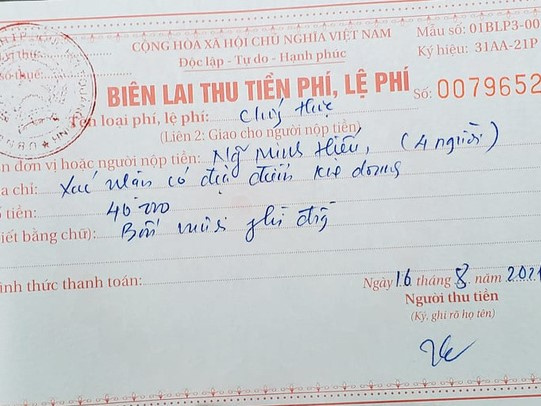 CỘNG HÒA XÃ HỘI CHỦ NGHĨA VIỆT NAM
Độc lập - Tự do - Hạnh phúc
Mẫu số: 01BLP3-00
Ký hiệu: 31AA-21P
BIÊN LAI THU TIỀN PHÍ, LỆ PHÍ
Số: 0079652
Tên loại phí, lệ phí: Chứng thực
(Liên 2: Giao cho người nộp tiền)
ên đơn vị hoặc người nộp tiền: Ng Minh Hiếu, (4 người)
a chỉ: Xác nhận có đặc điểm
ố tiền: 40 000
iết bằng chữ): Bốn mươi
ình thức thanh toán:
Ngày 16 tháng 8 năm 2021
Người thu tiền
(Ký, ghi rõ họ tên)